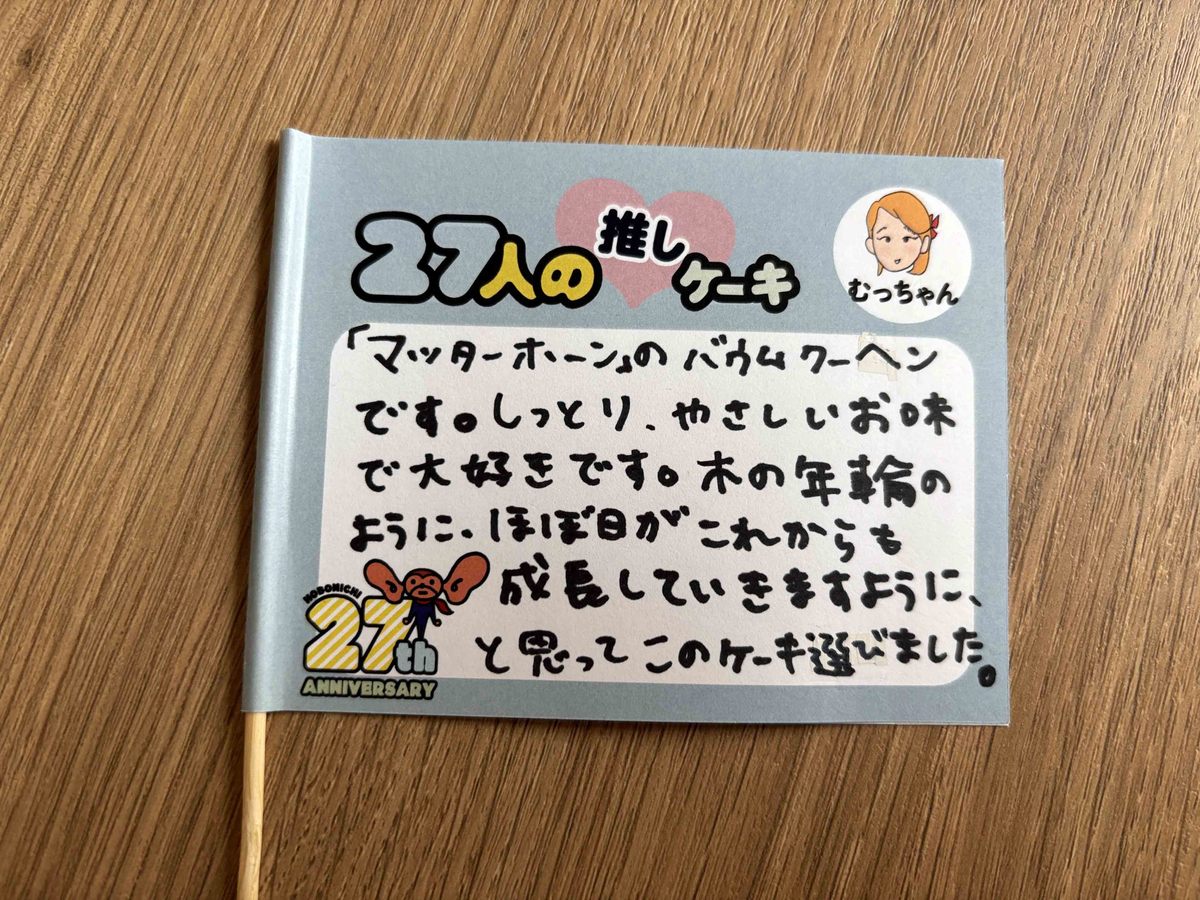 27人の推しケーキ
むっちゃん
「マッターホーン」のバウムクーヘン
です。しっとり、やさしいお味
で大好きです。木の年輪の
ように、ほぼ日がこれからも
成長していきますように、
と思ってこのケーキ選びました。
HOBONICHI
27th
ANNIVERSARY